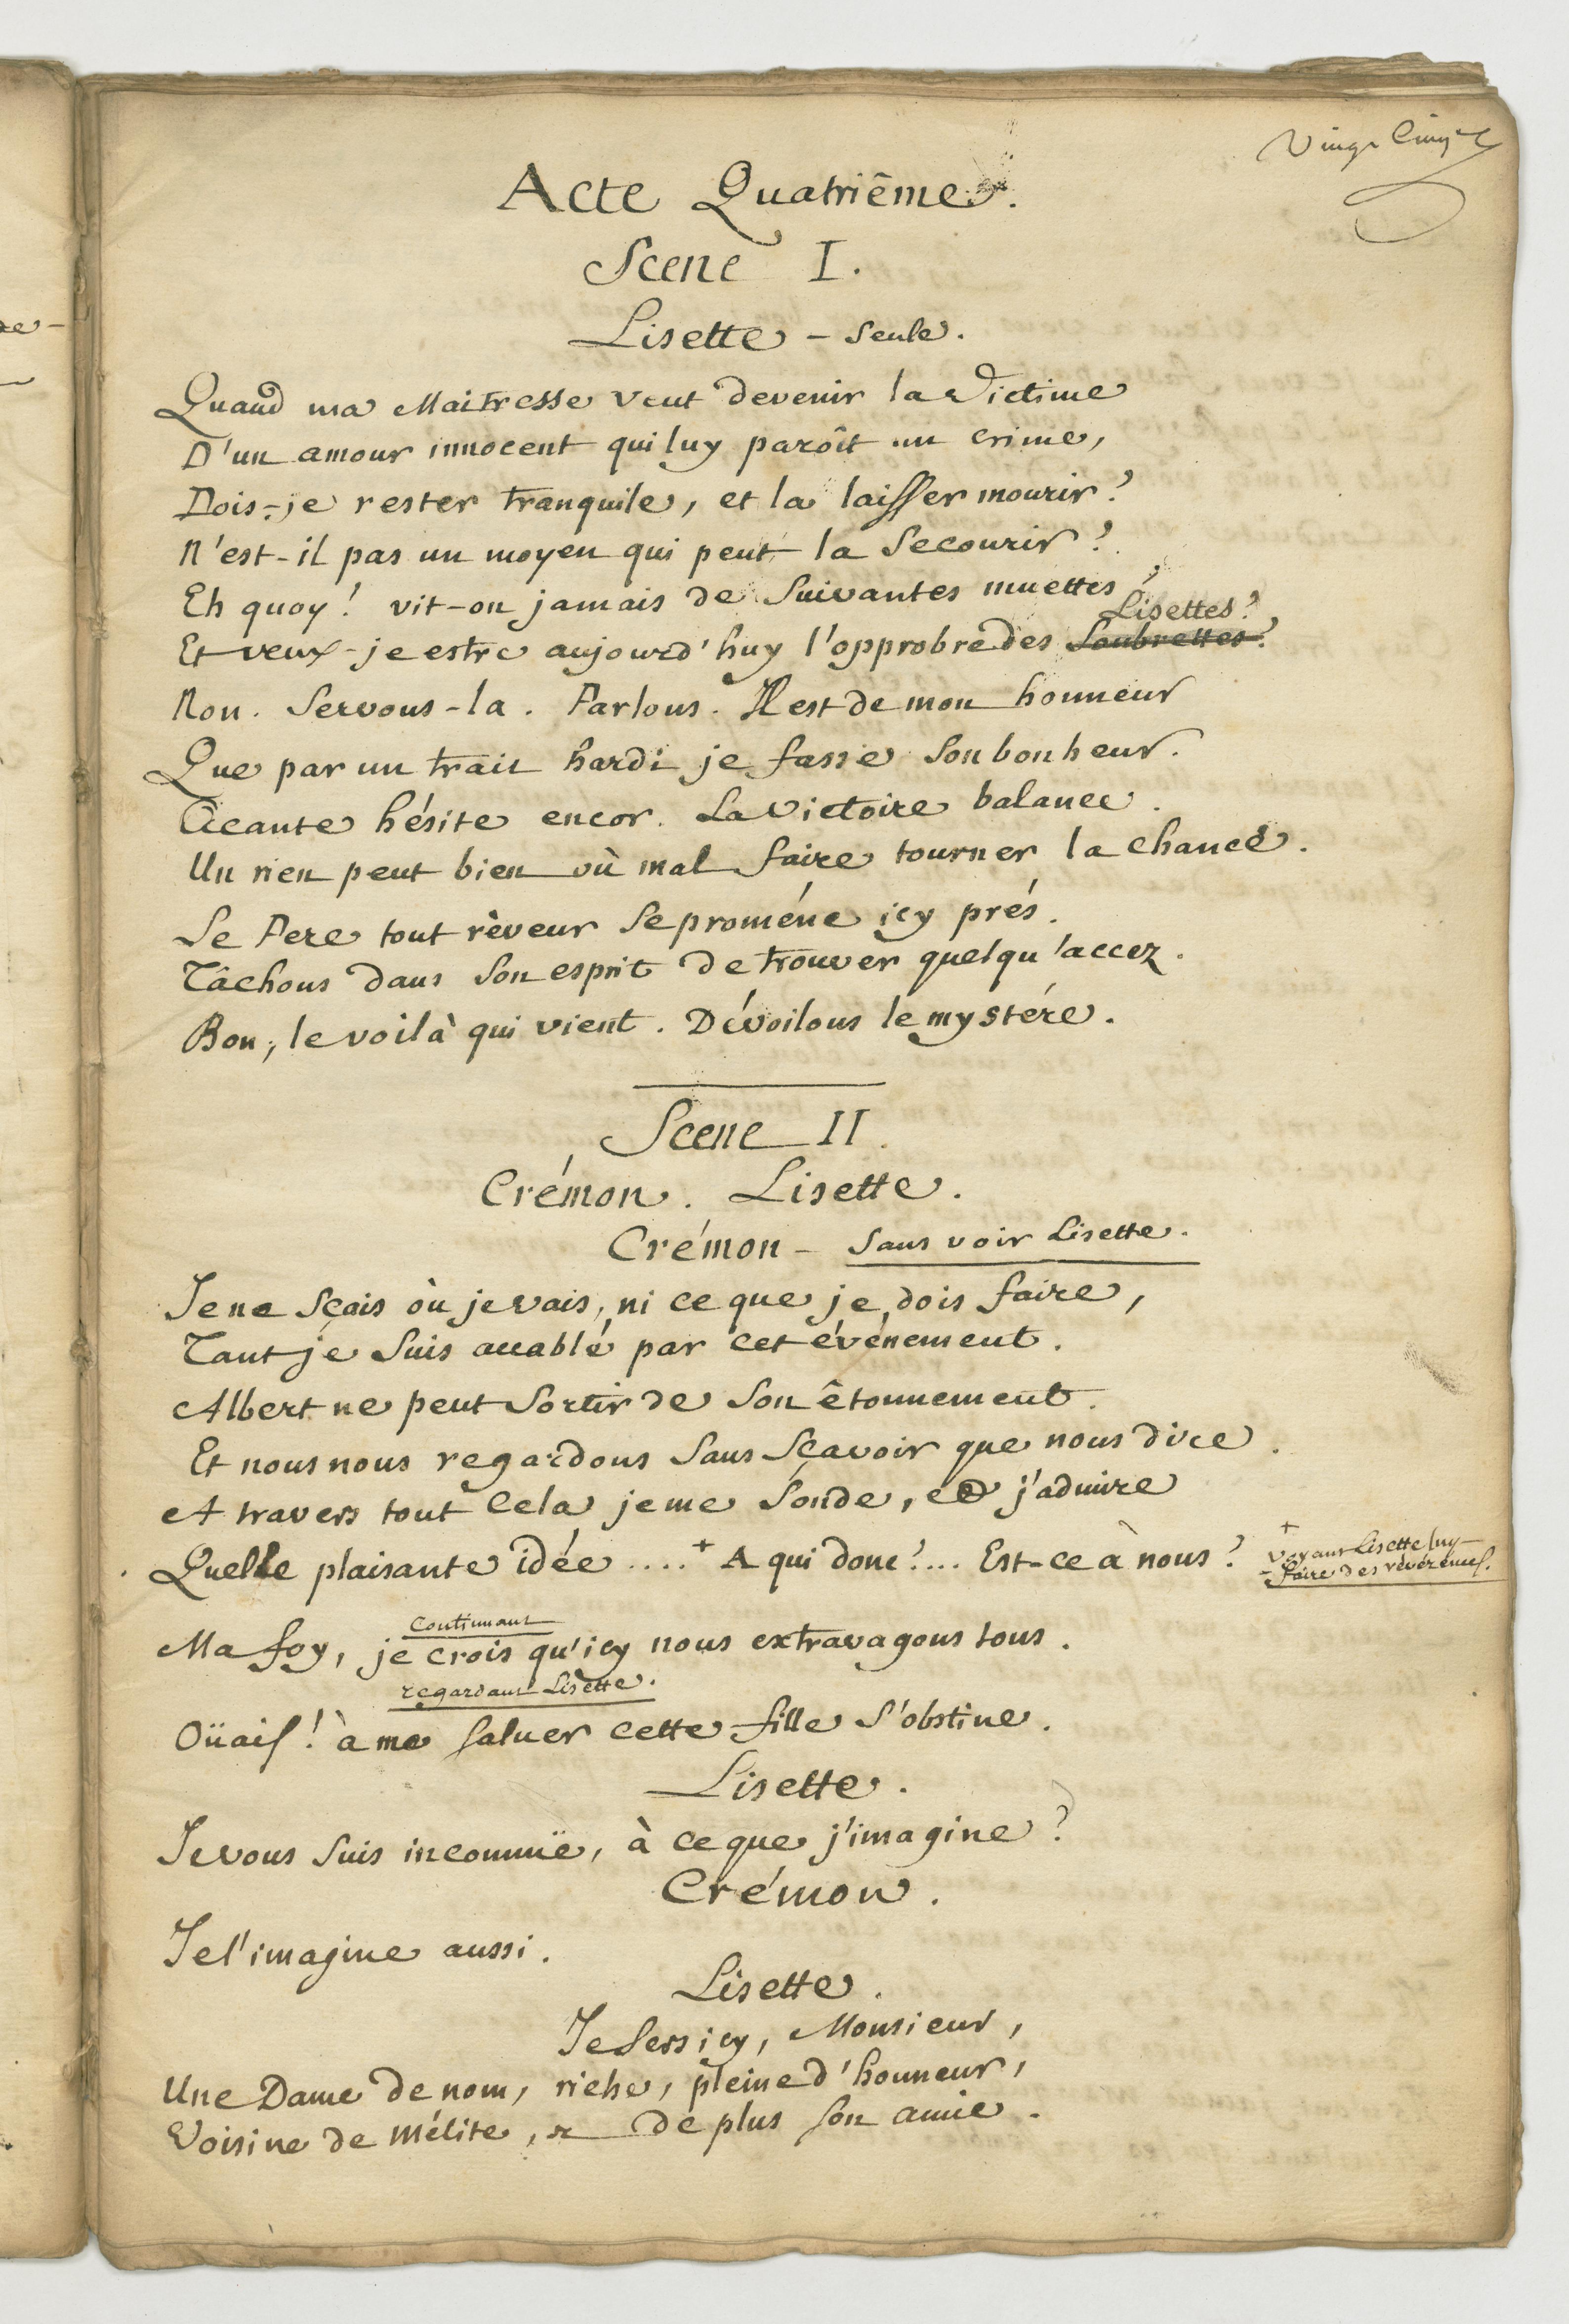 Vingt Cinq
Acte Quatriême.
Scene I.
Lisette – seule.
Quand ma Maitresse veut devenir la Victime
D'un amour innocent qui luy parôit un crime,
Dois-je rester tranquile, et la laisser mourir?
N'est-il pas un moyen qui peut la Secourir?
Eh quoy! vit-on jamais de Suivantes muettes,
Lisettes?
Et veux-je estre aujourd'huy l'opprobre des Soubrettes?
Non. Servons-la. Parlons. Il est de mon honneur
Que par un trait hardi je fasse Son bonheur.
Acante hésite encor. La Victoire balance.
Un rien peut bien où mal faire tourner la chance.
Le Pere tout rêveur Se proméne icy prés.
Tâchons dans Son esprit de trouver quelqu'accez.
Bon, le voilà qui vient. Dévoilons le mystére.
Scene II.
Crémon. Lisette.
Crémon – Sans voir Lisette.
Je ne Sçais où je vais, ni ce que je dois faire,
Tant je Suis accablé par cet événement.
Albert ne peut Sortir de Son êtonnement.
Et nous nous regardons Sans Sçavoir que nous dire.
A travers tout Cela je me Sonde, et j'admire
Quelle plaisante idée .... + A qui donc? ... Est-ce à nous?
+ Voyant Lisette luy
faire des révérences.
continuant
Ma foy, je crois qu'icy nous extravagons tous.
regardant Lisette.
Oüais! à me Saluer cette fille S'obstine.
Lisette.
Je vous Suis inconnuë, à ce que j'imagine?
Crémon.
Je l'imagine aussi.
Lisette.
Je Sers icy, Monsieur,
Une Dame de nom, riche, pleine d'honneur,
Voisine de Mélite, & de plus Son amie.